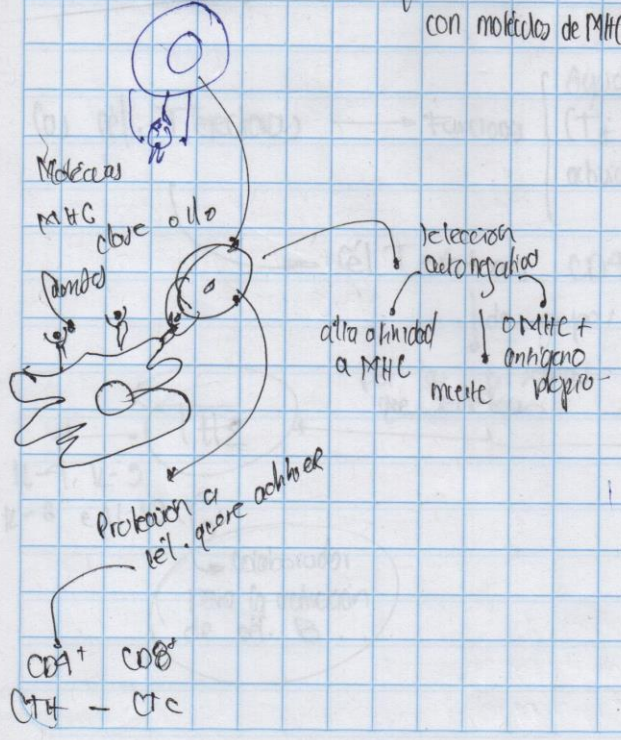 con moléculas de MHC
Moléculas
MHC
clase o IIo
selección
auto negativo
alta afinidad
a MHC
muerte
o MHC +
antígeno
propio
Protección a
cél. quere
CD4+ CD8+
CTH - CTC